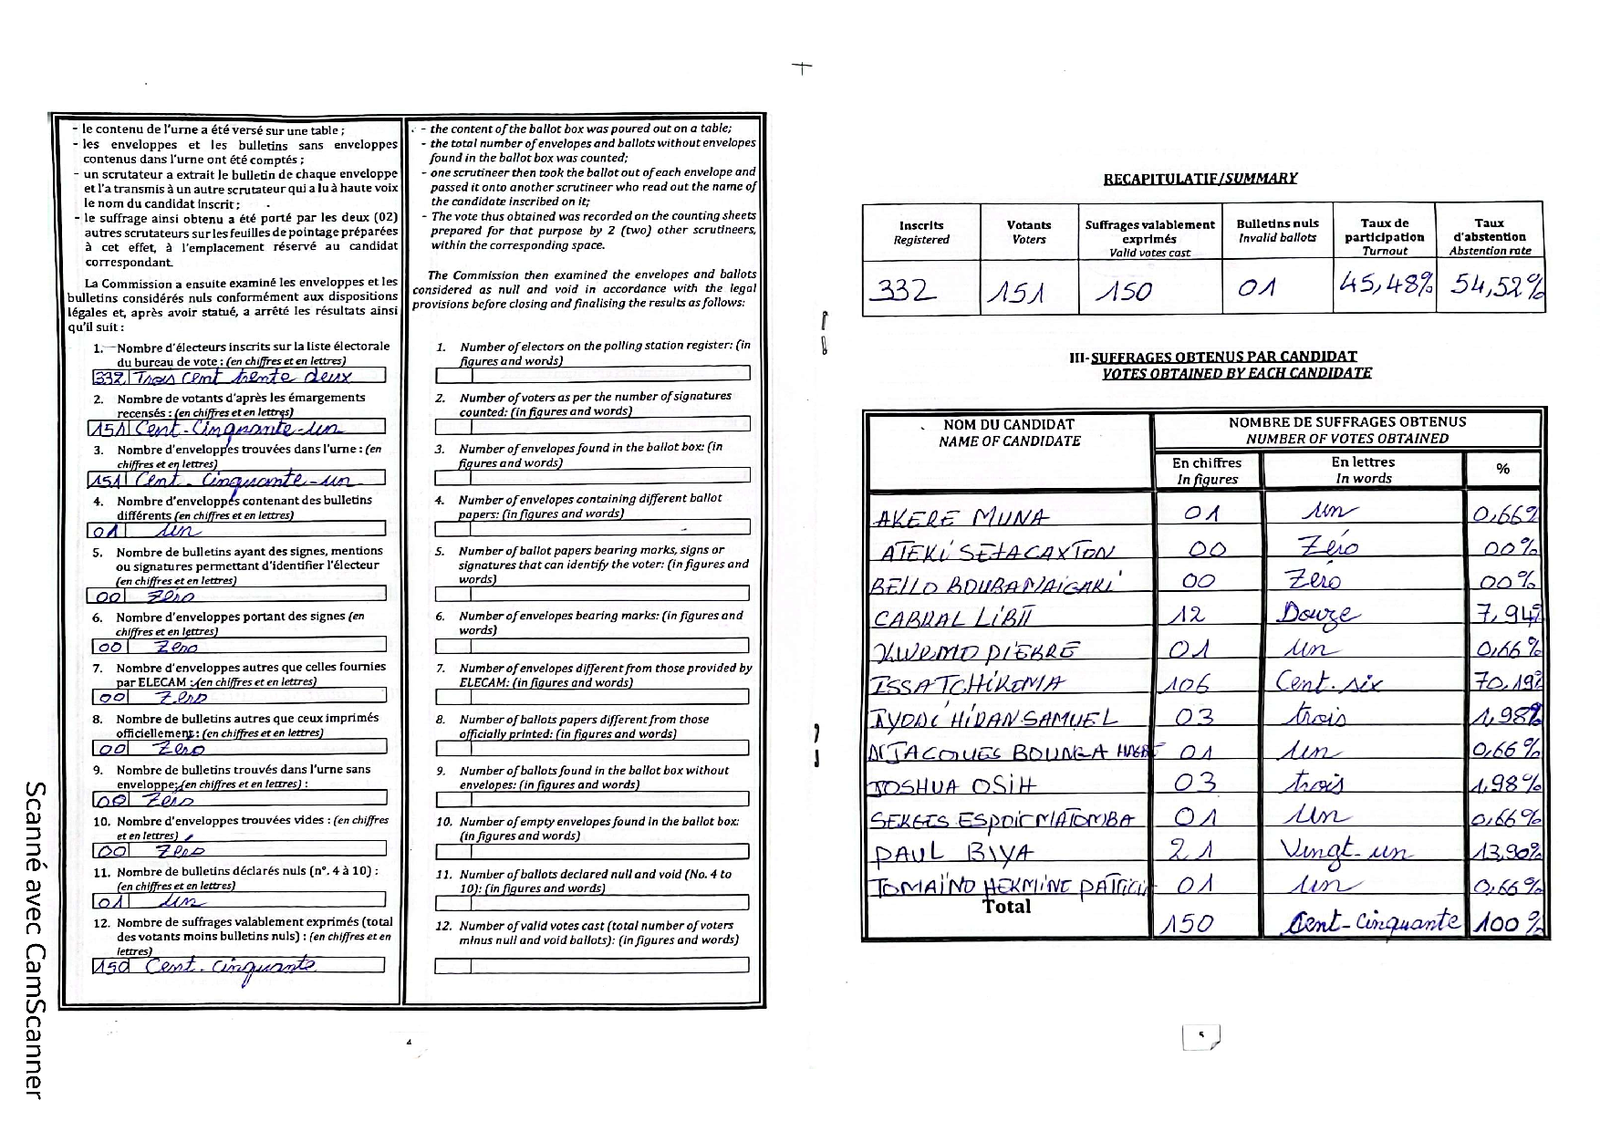 - le contenu de l'urne a été versé sur une table ;
- les enveloppes et les bulletins sans enveloppes
contenus dans l'urne ont été comptés ;
- un scrutateur a extrait le bulletin de chaque enveloppe
et l'a transmis à un autre scrutateur qui a lu à haute voix
le nom du candidat inscrit ;
- le suffrage ainsi obtenu a été porté par les deux (02)
autres scrutateurs sur les feuilles de pointage préparées
à cet effet, à l'emplacement réservé au candidat
correspondant.
La Commission a ensuite examiné les enveloppes et les
bulletins considérés nuls conformément aux dispositions
légales et, après avoir statué, a arrêté les résultats ainsi
qu'il suit :
1. Nombre d'électeurs inscrits sur la liste électorale
du bureau de vote : (en chiffres et en lettres)
332 Trois cent trente deux
2. Nombre de votants d'après les émargements
recensés : (en chiffres et en lettres)
151 Cent-Cinquante-un
3. Nombre d'enveloppes trouvées dans l'urne : (en
chiffres et en lettres)
151 Cent-Cinquante-un
4. Nombre d'enveloppes contenant des bulletins
différents (en chiffres et en lettres)
01 un
5. Nombre de bulletins ayant des signes, mentions
ou signatures permettant d'identifier l'électeur
(en chiffres et en lettres)
00 Zéro
6. Nombre d'enveloppes portant des signes (en
chiffres et en lettres)
00 Zero
7. Nombre d'enveloppes autres que celles fournies
par ELECAM :(en chiffres et en lettres)
00 Zero
8. Nombre de bulletins autres que ceux imprimés
officiellement : (en chiffres et en lettres)
00 Zero
9. Nombre de bulletins trouvés dans l'urne sans
enveloppe:(en chiffres et en lettres) :
00 Zéro
10. Nombre d'enveloppes trouvées vides : (en chiffres
et en lettres)
00 Zéro
11. Nombre de bulletins déclarés nuls (n°. 4 à 10) :
(en chiffres et en lettres)
01 un
12. Nombre de suffrages valablement exprimés (total
des votants moins bulletins nuls) : (en chiffres et en
lettres)
150 Cent-cinquante
- the content of the ballot box was poured out on a table;
- the total number of envelopes and ballots without envelopes
found in the ballot box was counted;
- one scrutineer then took the ballot out of each envelope and
passed it onto another scrutineer who read out the name of
the candidate inscribed on it;
- The vote thus obtained was recorded on the counting sheets
prepared for that purpose by 2 (two) other scrutineers,
within the corresponding space.
The Commission then examined the envelopes and ballots
considered as null and void in accordance with the legal
provisions before closing and finalising the results as follows:
1. Number of electors on the polling station register: (in
figures and words)
2. Number of voters as per the number of signatures
counted: (in figures and words)
3. Number of envelopes found in the ballot box: (in
figures and words)
4. Number of envelopes containing different ballot
papers: (in figures and words)
5. Number of ballot papers bearing marks, signs or
signatures that can identify the voter: (in figures and
words)
6. Number of envelopes bearing marks: (in figures and
words)
7. Number of envelopes different from those provided by
ELECAM: (in figures and words)
8. Number of ballots papers different from those
officially printed: (in figures and words)
9. Number of ballots found in the ballot box without
envelopes: (in figures and words)
10. Number of empty envelopes found in the ballot box:
(in figures and words)
11. Number of ballots declared null and void (No. 4 to
10): (in figures and words)
12. Number of valid votes cast (total number of voters
minus null and void ballots): (in figures and words)
4
Scanné avec CamScanner
RECAPITULATIF/SUMMARY
Inscrits Votants Suffrages valablement exprimés Bulletins nuls Taux de participation Taux d'abstention
Registered Voters Valid votes cast Invalid ballots Turnout Abstention rate
332 151 150 01 45,48% 54,52%
III- SUFFRAGES OBTENUS PAR CANDIDAT
VOTES OBTAINED BY EACH CANDIDATE
NOM DU CANDIDAT NOMBRE DE SUFFRAGES OBTENUS
NAME OF CANDIDATE NUMBER OF VOTES OBTAINED
En chiffres En lettres %
In figures In words
AKERE MUNA 01 un 0,66%
ATEKI SETA CAXTON 00 Zéro 00%
BELLO BOUBA MAIGARI 00 Zéro 00%
CABRAL LIBII 12 Douze 7,94%
KWEMO PIERRE 01 un 0,66%
ISSA TCHIROMA 106 Cent-six 70,19%
IYODI HIRAN SAMUEL 03 trois 1,98%
JACQUES BOUNGA 01 un 0,66%
JOSHUA OSIH 03 trois 1,98%
SERGES ESPOIR MATOMBA 01 un 0,66%
PAUL BIYA 21 Vingt-un 13,90%
TOMAINO HERMINE PATRICIA 01 un 0,66%
Total 150 Cent-cinquante 100%
5